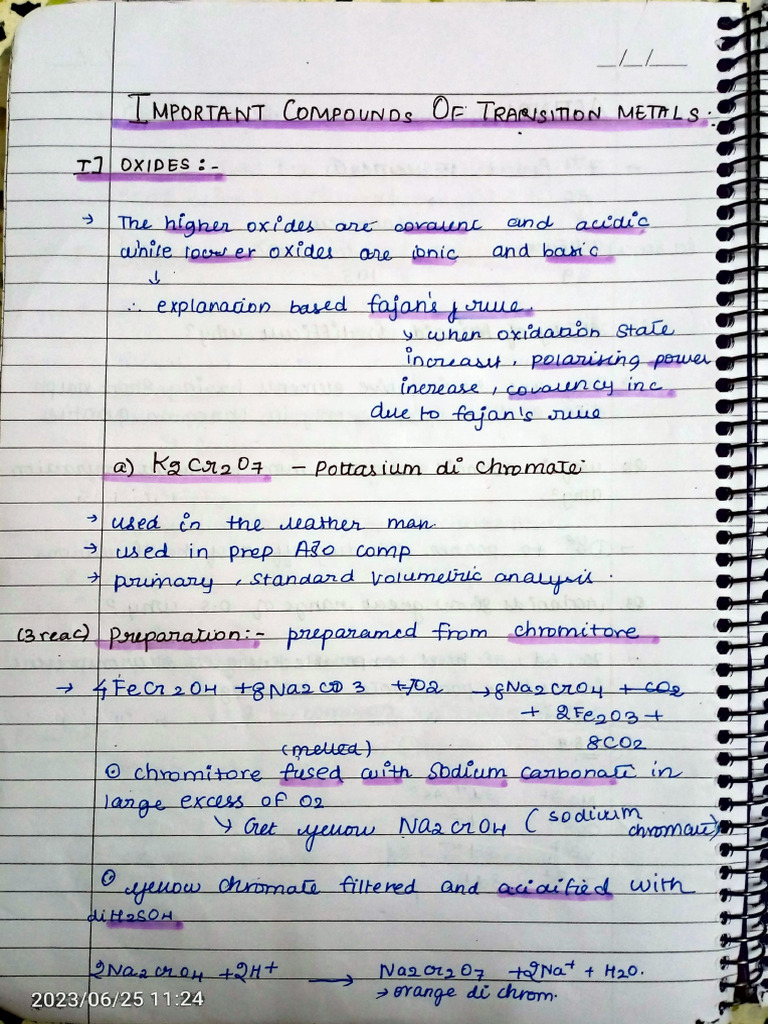 _/_/_
IMPORTANT COMPOUNDS OF TRANSITION METALS:
I] OXIDES :-
→ The higher oxides are covalent and acidic
while lower oxides are ionic and basic
↓
∴ explanation based fajan's rule.
↳ when oxidation state
increases, polarising power
increase, covalency inc
due to fajan's rule
a) K2Cr2O7 - Pottasium di chromate
→ used in the leather man.
→ used in prep Azo comp
→ primary, standard volumetric analysis.
(3 reac) Preparation:- preparamed from chromitore
→ 4FeCr2O4 + 8Na2CO3 + 7O2 → 8Na2CrO4 + CO2
+ 2Fe2O3 +
8CO2
(melted)
⊙ chromitore fused with sodium carbonate in
large excess of O2
↳ Get yellow Na2CrO4 (sodium
chromate)
⊙ yellow chromate filtered and acidified with
dil H2SO4
2Na2CrO4 + 2H+ → Na2Cr2O7 + 2Na+ + H2O.
→ orange di chrom.
2023/06/25 11:24